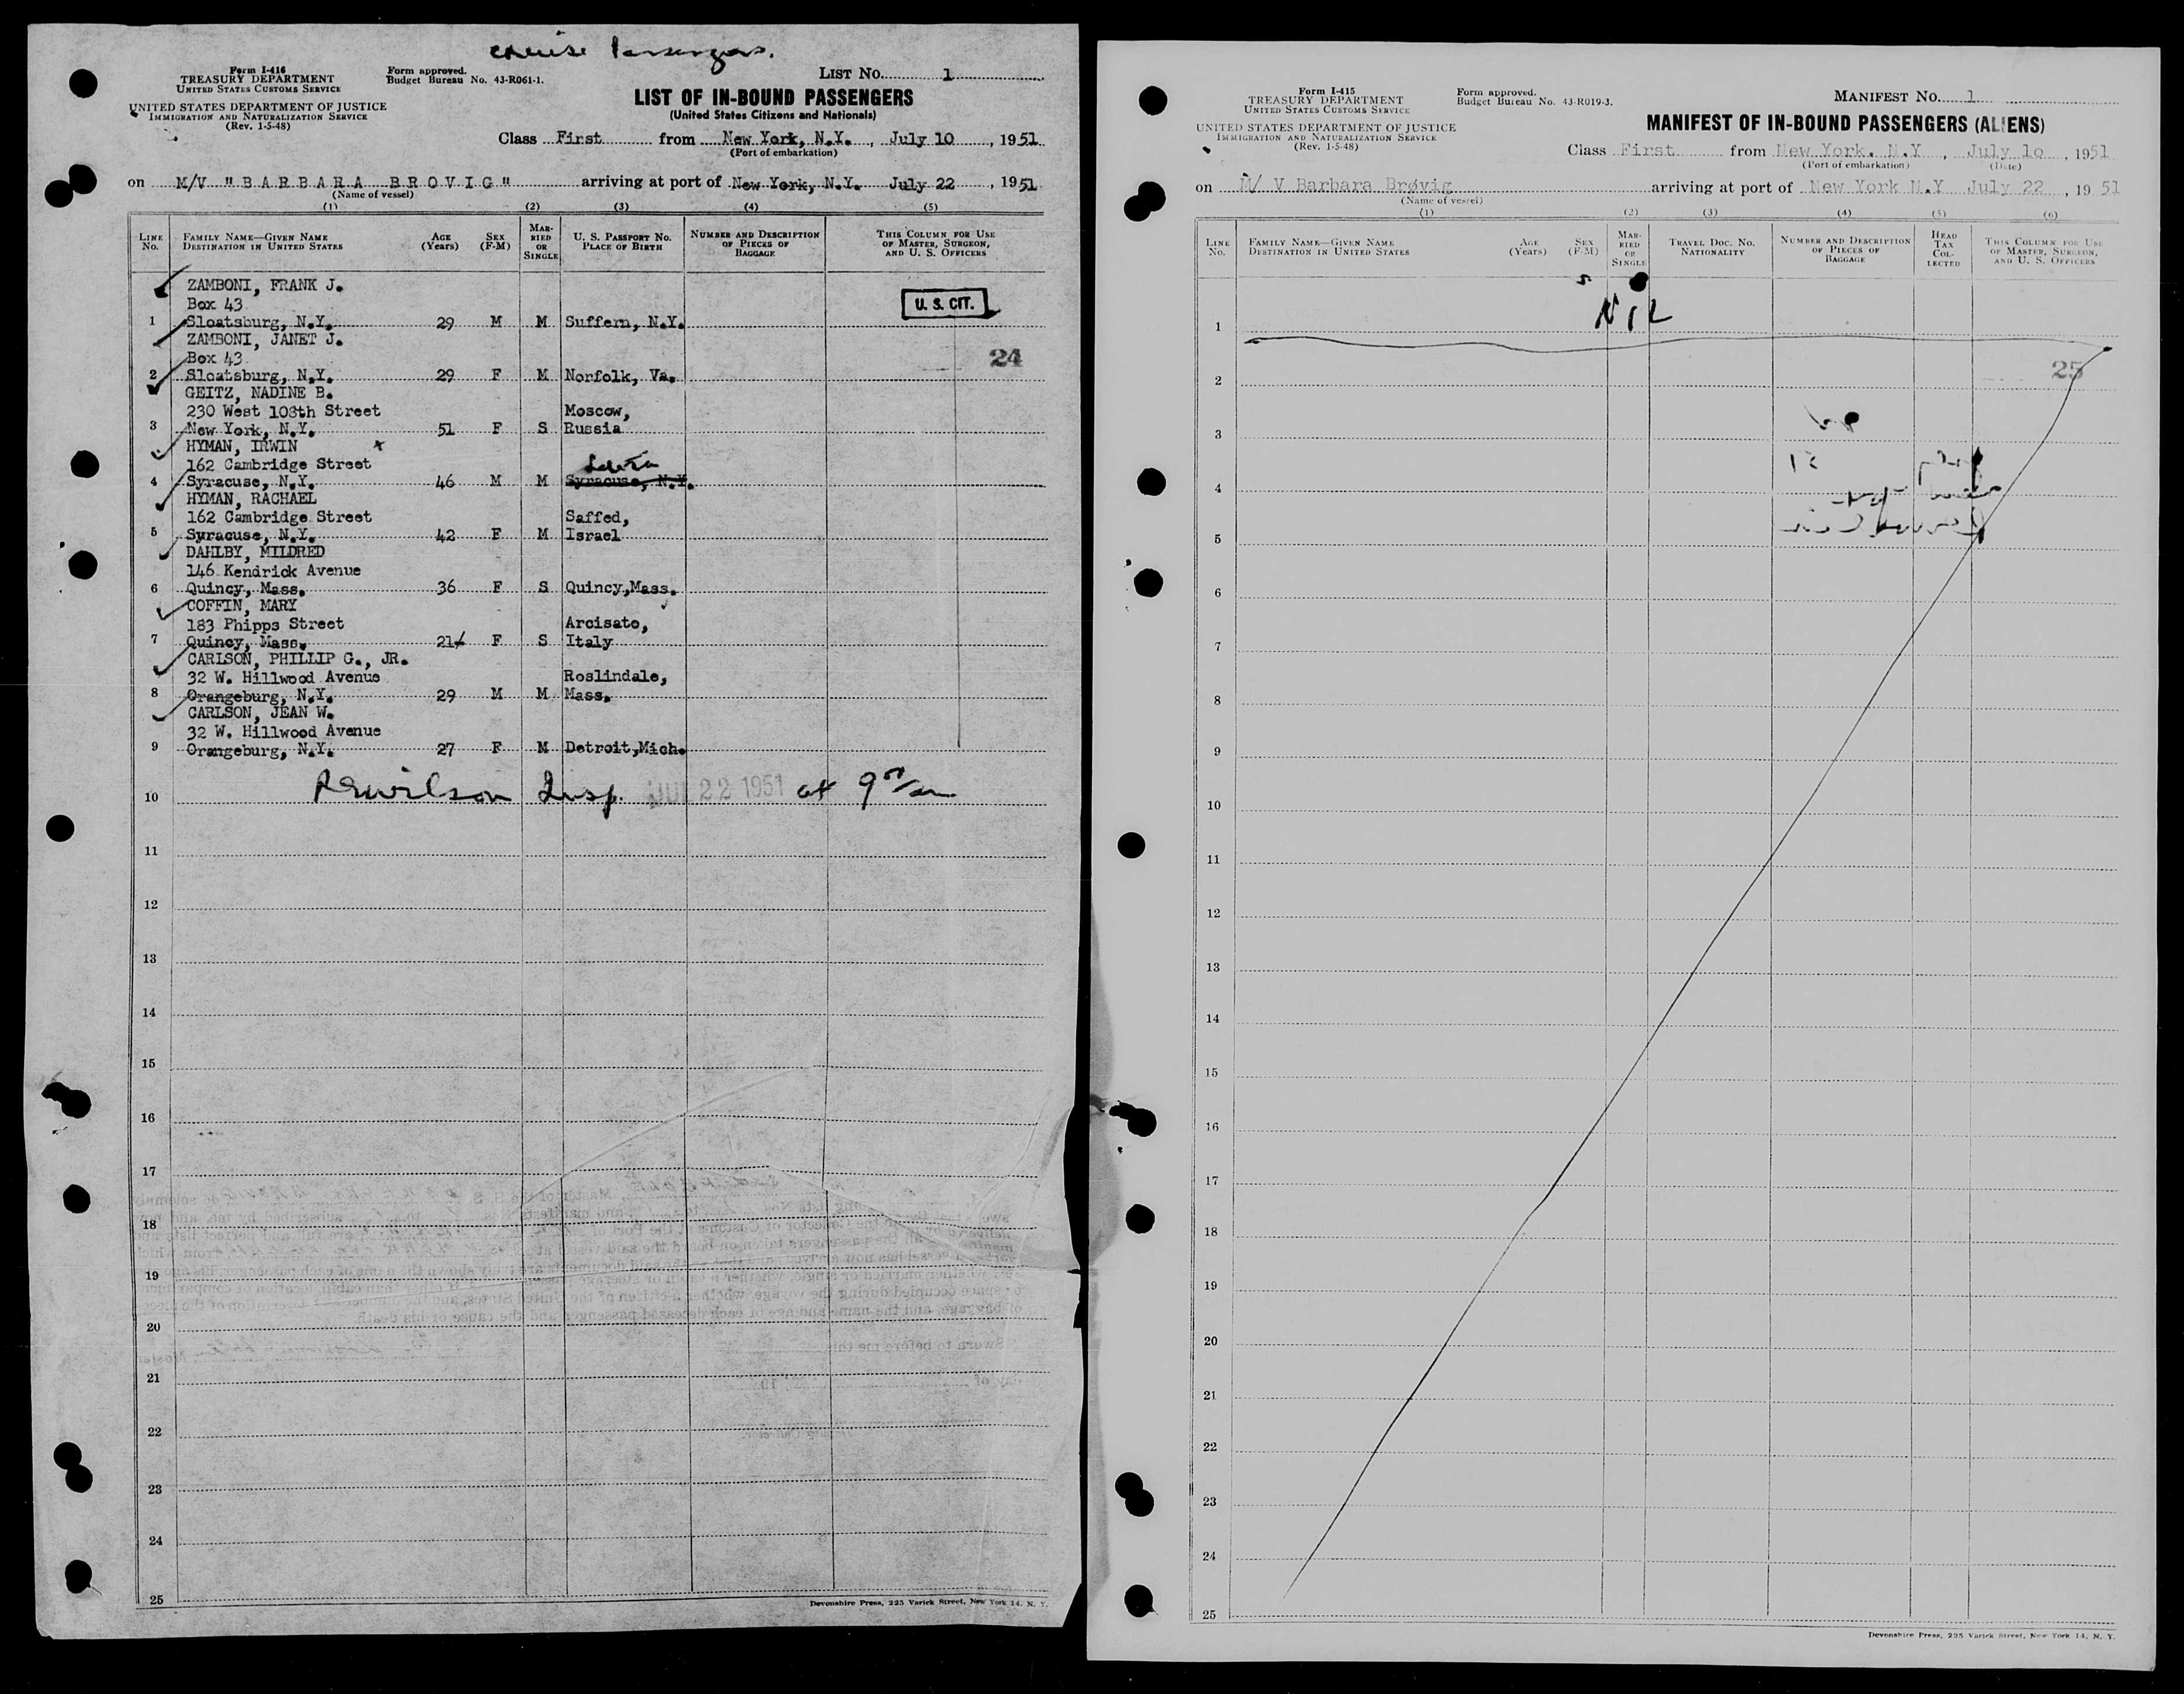 cruise Passengers.
Form I-416
TREASURY DEPARTMENT
UNITED STATES CUSTOMS SERVICE
UNITED STATES DEPARTMENT OF JUSTICE
IMMIGRATION AND NATURALIZATION SERVICE
(Rev. 1-5-48)
Form approved.
Budget Bureau No. 43-R061-1.
LIST NO. 1
LIST OF IN-BOUND PASSENGERS
(United States Citizens and Nationals)
Class First from New York, N.Y. , July 10 , 1951
(Port of embarkation)
on M/V "BARBARA BROVIG" arriving at port of New York, N.Y. July 22 , 1951
(Name of vessel)
(1) (2) (3) (4) (5)
LINE No. FAMILY NAME—GIVEN NAME DESTINATION IN UNITED STATES AGE (Years) SEX (F-M) MARRIED OR SINGLE U. S. PASSPORT NO. PLACE OF BIRTH NUMBER AND DESCRIPTION OF PIECES OF BAGGAGE THIS COLUMN FOR USE OF MASTER, SURGEON, AND U. S. OFFICERS
ZAMBONI, FRANK J.
Box 43
U. S. CIT.
1 Sloatsburg, N.Y. 29 M M Suffern, N.Y.
ZAMBONI, JANET J.
Box 43
24
2 Sloatsburg, N.Y. 29 F M Norfolk, Va.
GEITZ, NADINE B.
230 West 108th Street Moscow,
3 New York, N.Y. 51 F S Russia
HYMAN, IRWIN x
162 Cambridge Street
4 Syracuse, N.Y. 46 M M Syracuse, N.Y.
HYMAN, RACHAEL
162 Cambridge Street Saffed,
5 Syracuse, N.Y. 42 F M Israel
DAHLBY, MILDRED
146 Kendrick Avenue
6 Quincy, Mass. 36 F S Quincy,Mass.
COFFIN, MARY
183 Phipps Street Arcisate,
7 Quincy, Mass. 21 F S Italy
CARLSON, PHILLIP G., JR.
32 W. Hillwood Avenue Roslindale,
8 Orangeburg, N.Y. 29 M M Mass.
CARLSON, JEAN W.
32 W. Hillwood Avenue
9 Orangeburg, N.Y. 27 F M Detroit,Mich.
10 REWilson Insp. JUL 22 1951 at 9 00/am
11
12
13
14
15
16
17
18
19
20
21
22
23
24
25
Devonshire Press, 225 Varick Street, New York 14, N. Y.
Form I-415
TREASURY DEPARTMENT
UNITED STATES CUSTOMS SERVICE
UNITED STATES DEPARTMENT OF JUSTICE
IMMIGRATION AND NATURALIZATION SERVICE
(Rev. 1-5-48)
Form approved.
Budget Bureau No. 43-R019-3.
MANIFEST NO. 1
MANIFEST OF IN-BOUND PASSENGERS (ALIENS)
Class First from New York. N.Y , July 10 , 1951
(Port of embarkation) (Date)
on M/ V Barbara Brøvig arriving at port of New York N.Y July 22 , 19 51
(Name of vessel)
(1) (2) (3) (4) (5) (6)
LINE No. FAMILY NAME—GIVEN NAME DESTINATION IN UNITED STATES AGE (Years) SEX (F-M) MARRIED OR SINGLE TRAVEL DOC. NO. NATIONALITY NUMBER AND DESCRIPTION OF PIECES OF BAGGAGE HEAD TAX COLLECTED THIS COLUMN FOR USE OF MASTER, SURGEON, AND U. S. OFFICERS
Nil
1
25
2
3
4
5
6
7
8
9
10
11
12
13
14
15
16
17
18
19
20
21
22
23
24
25
Devonshire Press, 225 Varick Street, New York 14, N. Y.